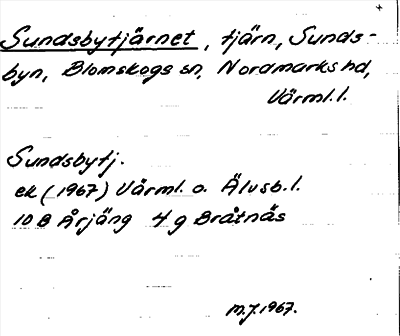 Sundsbytjärnet, tjärn, Sunds-
byn, Blomskogs sn, Nordmarks hd,
Värml. l.
Sundsbytj.
ek (1967) Värml. o. Älvsb. l.
10 B Årjäng 4 g Bråtnäs
M.J. 1967.